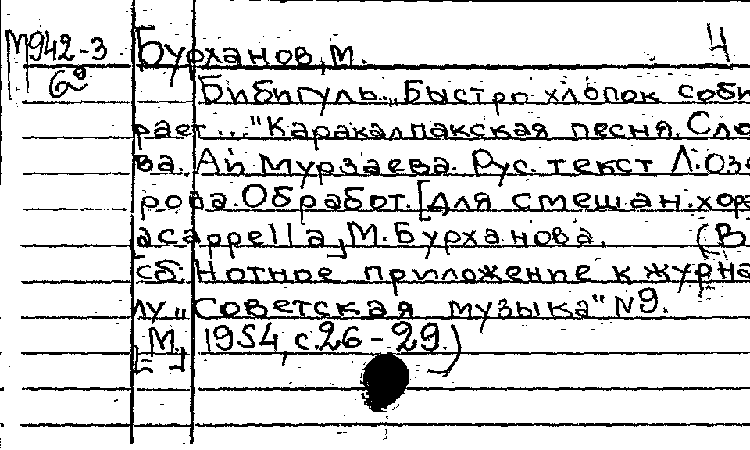 М942-3 Бурханов, М. 4
6° Бибигуль. „Быстро хлопок соби
рает..." Каракалпакская песня. Сло
ва. Ай Мурзаева. Рус. текст Л. Озе
рова. Обработ. [для смешан. хора
acappella], М. Бурханова. (В
сб. Нотное приложение к журна
лу „Советская музыка" №9.
[М.] 1954, с.26-29.)